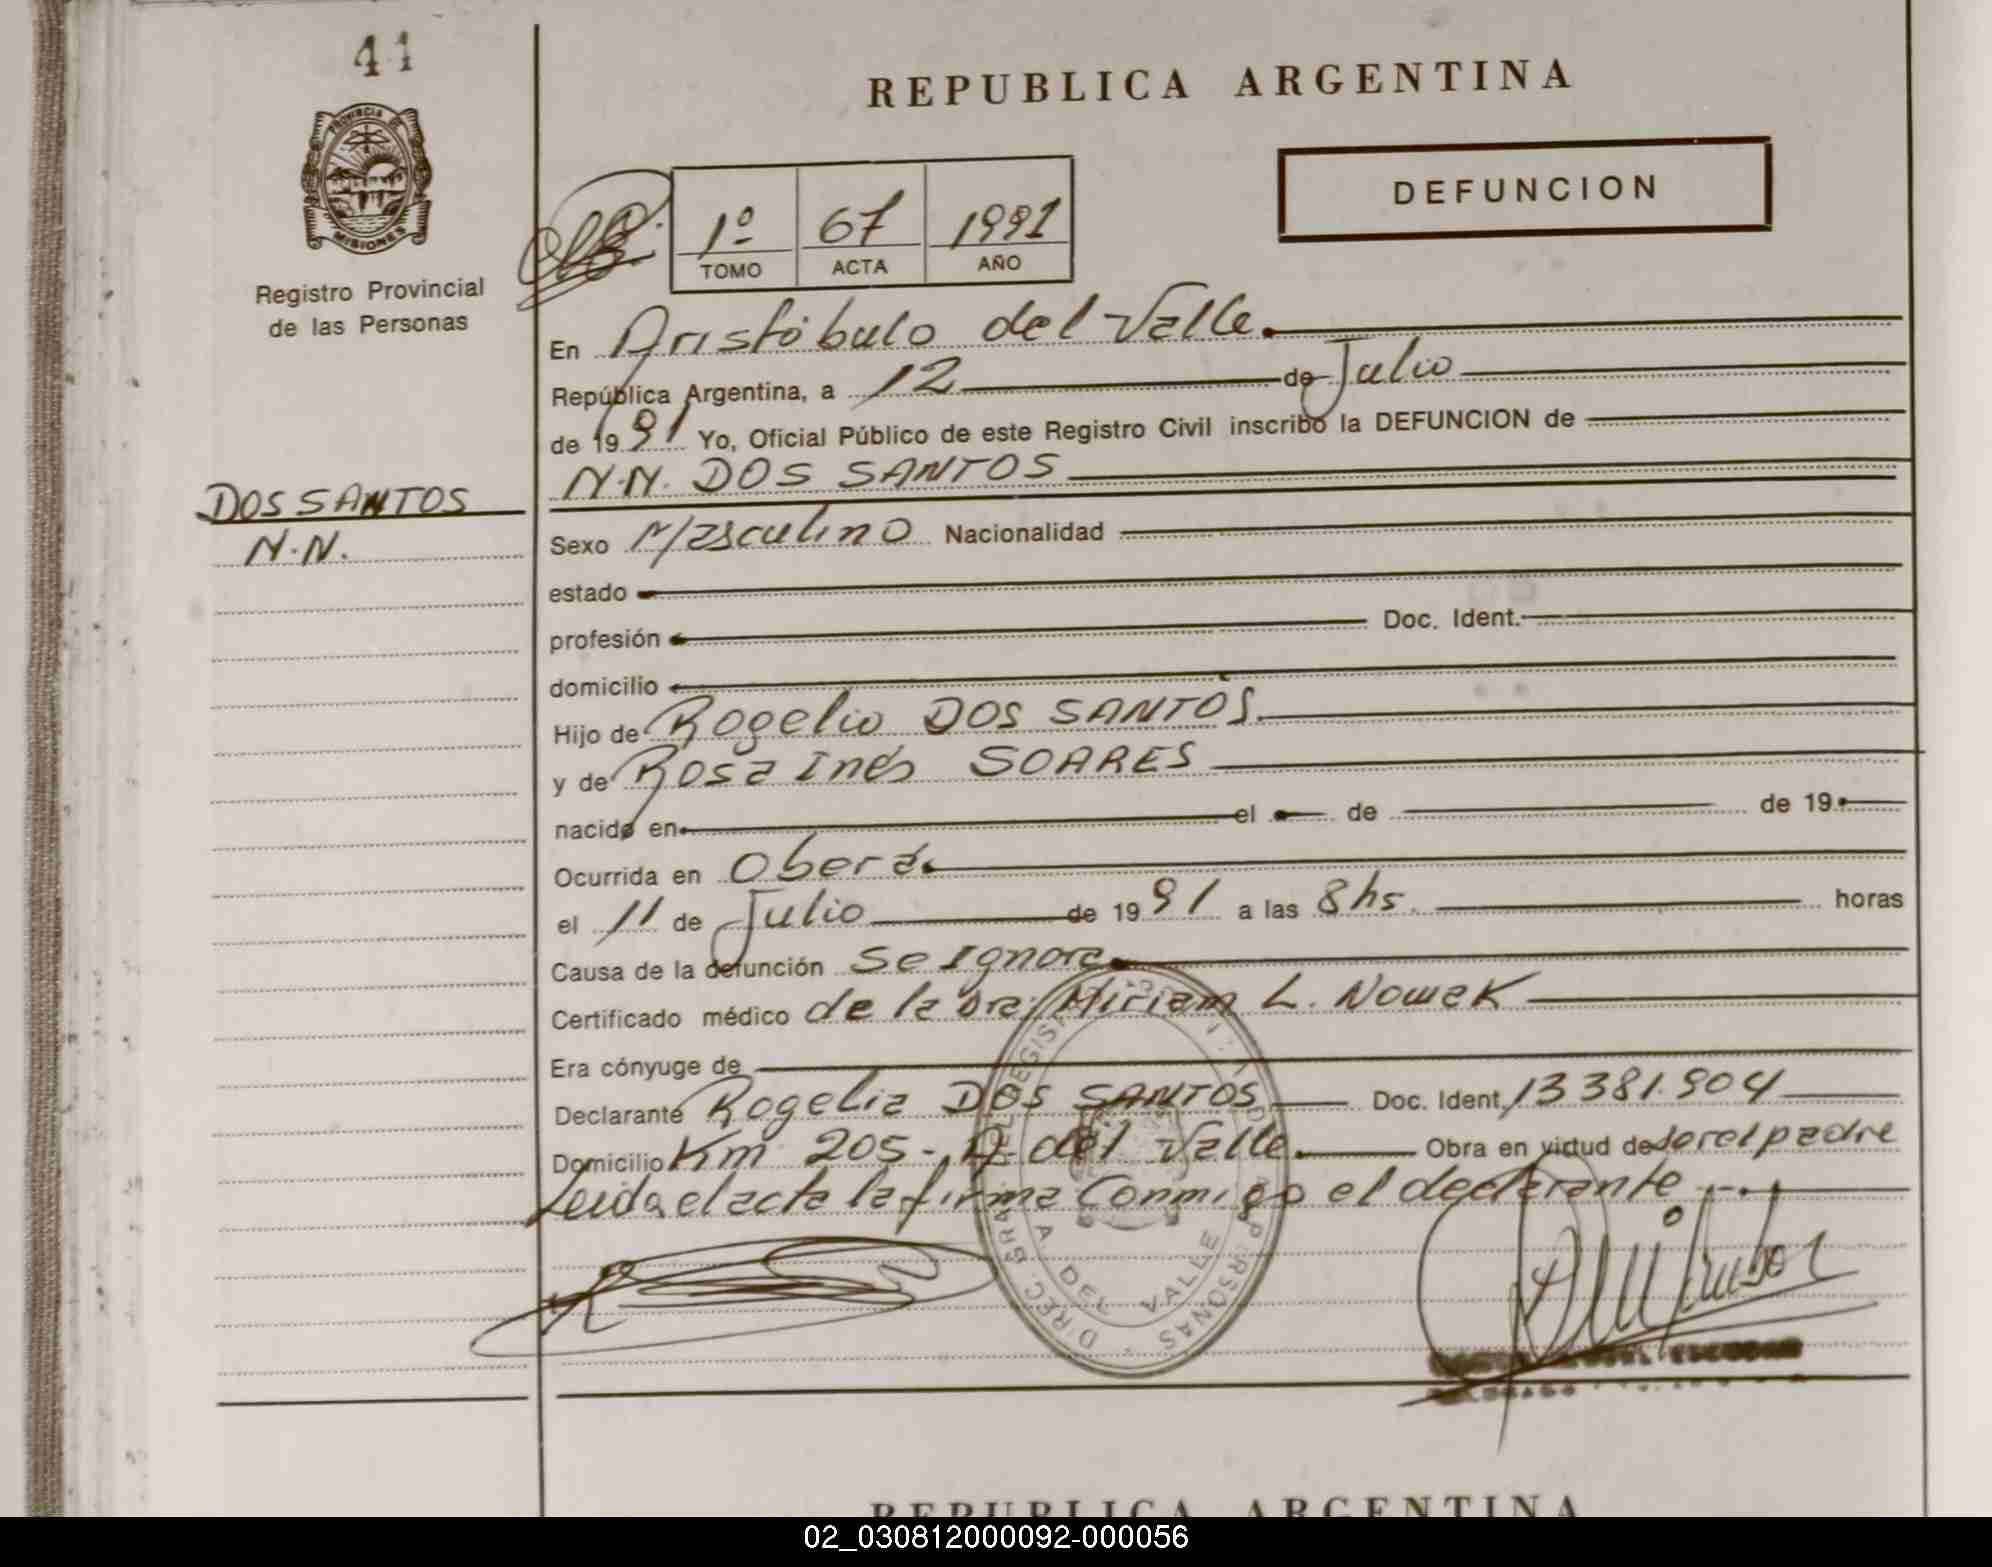 41
REPUBLICA ARGENTINA
PROVINCIA DE
MISIONES
Registro Provincial
de las Personas
DEFUNCION
1º 67 1991
TOMO ACTA AÑO
En Aristóbulo del Valle.
República Argentina, a 12 de Julio
de 1991 Yo, Oficial Público de este Registro Civil inscribo la DEFUNCION de
DOS SANTOS
N.N.
N.N. DOS SANTOS
Sexo Masculino Nacionalidad
estado
profesión Doc. Ident.
domicilio
Hijo de Rogelio DOS SANTOS.
y de Rosa Inés SOARES
nacido en el de de 19
Ocurrida en Oberá.
el 11 de Julio de 1991 a las 8 hs. horas
Causa de la defunción se ignora.
Certificado médico de la Dra. Miriam L. Nowak
Era cónyuge de
Declarante Rogelio DOS SANTOS Doc. Ident. 13381.904
Domicilio Km 205 - A. del Valle. Obra en virtud de ser el padre
Leida el acta la firma conmigo el declarante
A DEL VALLE
REPUBLICA ARGENTINA
02_030812000092-000056